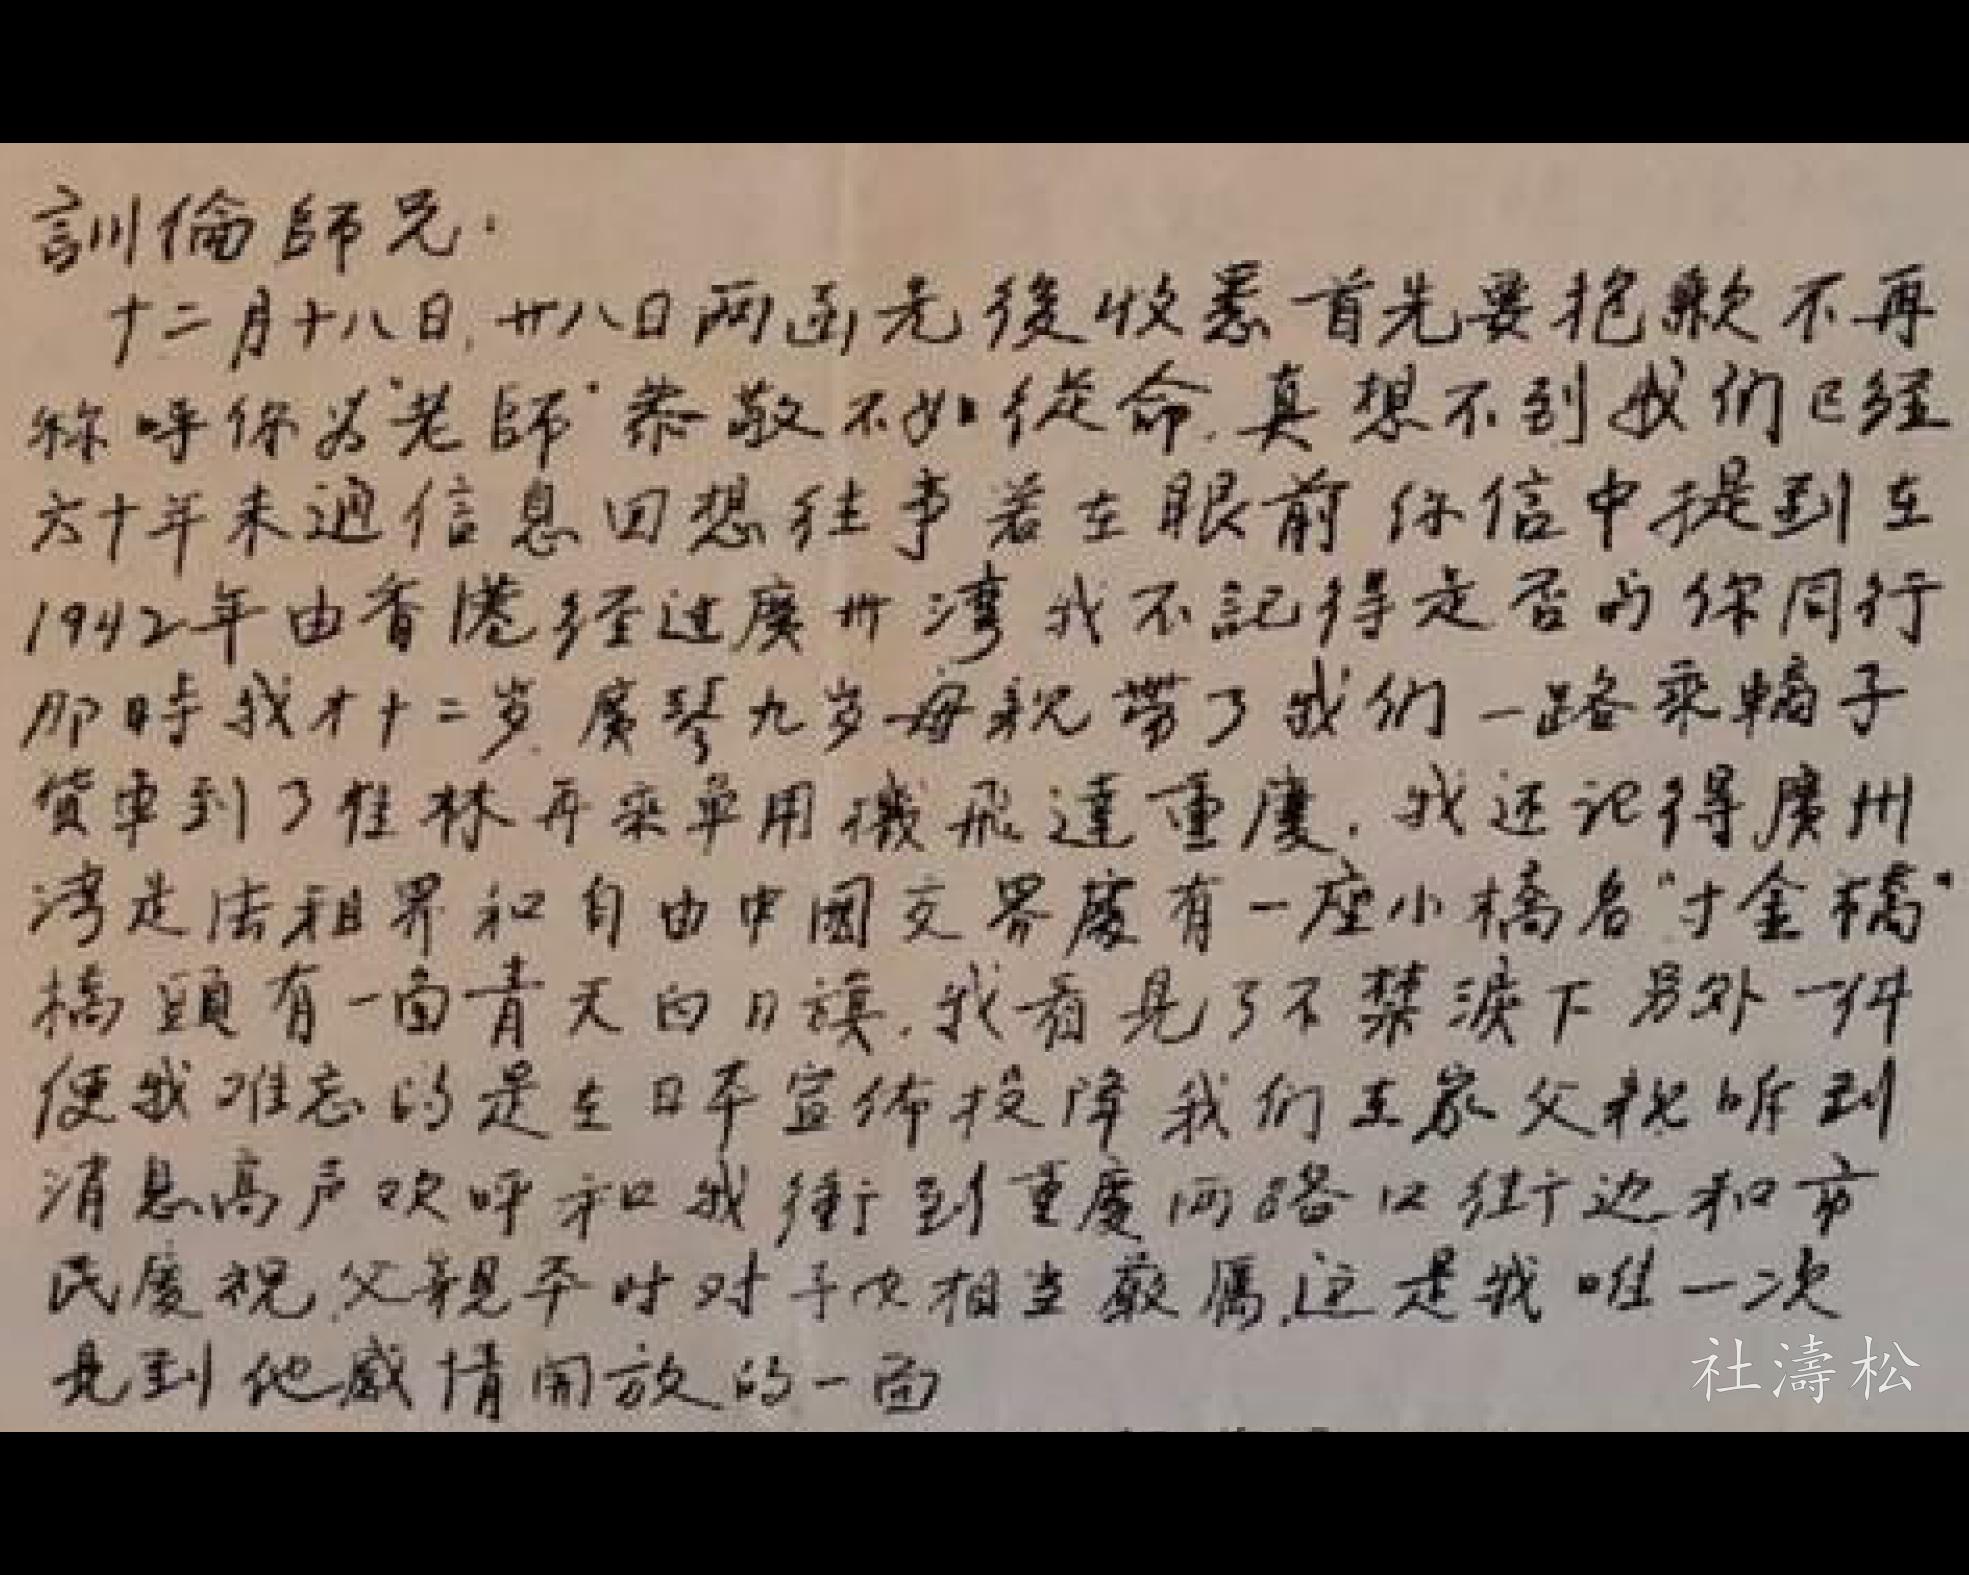 訓倫師兄.
十二月十八日,廿八日两函先後收悉首先要抱歉不再
称呼你为"老師"恭敬不如從命.真想不到我们已经
六十年未通信息回想往事若在眼前你信中提到在
1942年由香港经过廣州湾我不記得是否与你同行
那時我才十二岁.廣琴九岁母親带了我们一路乘轎子
货車到了桂林再乘軍用機飛達重慶.我还记得廣州
湾是法租界和自由中國交界處有一座小橋名"寸金橋"
橋頭有一面青天白日旗.我看見了不禁淚下另外一件
使我难忘的是在日本宣佈投降我们在家父親听到
消息高声欢呼和我衝到重慶两路口街边和市
民慶祝.父親平时对子女相当嚴厲.这是我唯一次
見到他感情開放的一面
社濤松